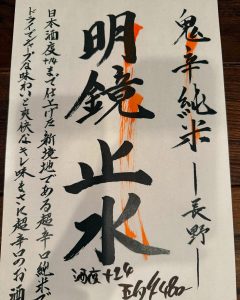 鬼辛純米 ー長野ー
明鏡止水
日本酒度+24まで仕上げた新境地である超辛口純米で
ドライでシャープな味わいと爽快なキレ味まさに超辛口のお酒
酒度+24